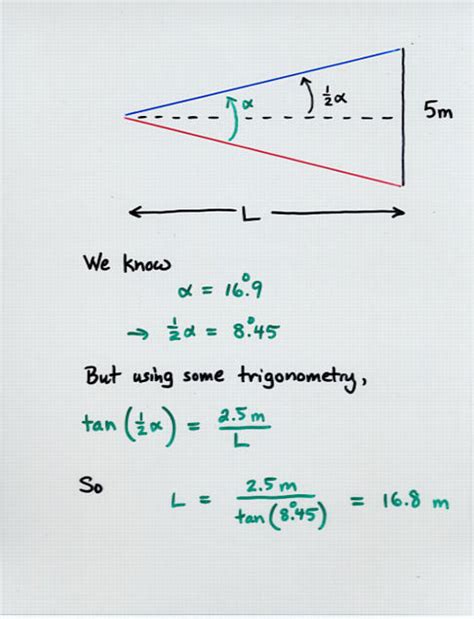 α
½α
5m
L
We know
α = 16°.9
→ ½α = 8°.45
But using some trigonometry,
tan (½α) = 2.5 m / L
So
L = 2.5 m / tan (8°.45) = 16.8 m